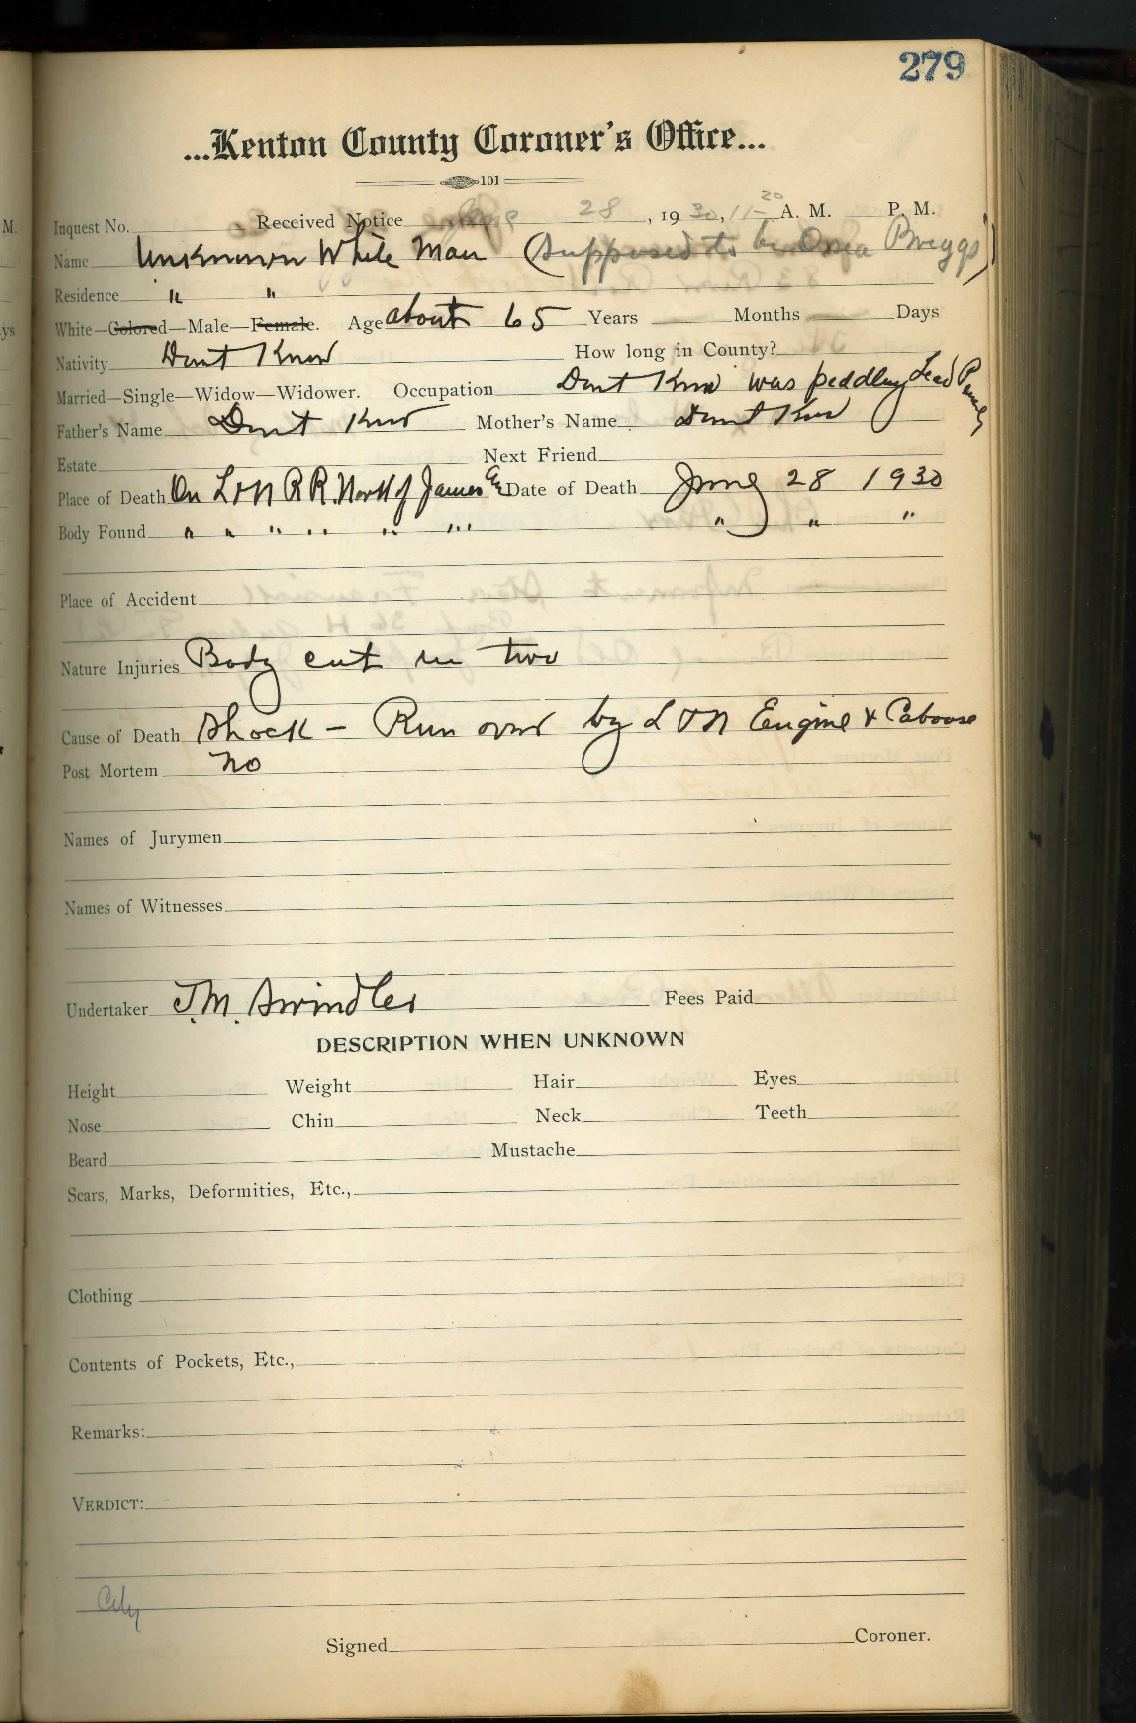 279
...Kenton County Coroner's Office...
101
Inquest No. Received Notice June 28, 1930, 11-20 A. M. P. M.
Name Unknown White Man (Supposed to be Briggs)
Residence " "
White—Colored—Male—Female. Age about 65 Years Months Days
Nativity Dont Know How long in County?
Married—Single—Widow—Widower. Occupation Dont Know was peddling Lead Pencils
Father's Name Dont Know Mother's Name Dont Know
Estate Next Friend
Place of Death On L & N R R. North of James Date of Death June 28 1930
Body Found " " " " " " " " "
Place of Accident
Nature Injuries Body cut in two
Cause of Death Shock – Run over by L & N Engine & Caboose
Post Mortem no
Names of Jurymen
Names of Witnesses
Undertaker J.M. Swindler Fees Paid
DESCRIPTION WHEN UNKNOWN
Height Weight Hair Eyes
Nose Chin Neck Teeth
Beard Mustache
Scars, Marks, Deformities, Etc.,
Clothing
Contents of Pockets, Etc.,
Remarks:
VERDICT:
City
Signed Coroner.